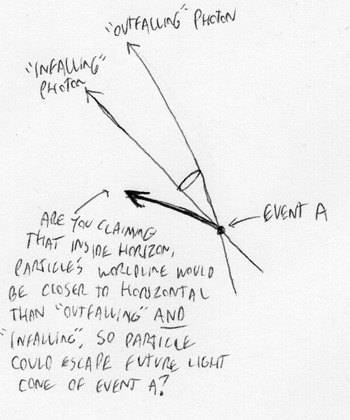 "OUTFALLING" PHOTON
"INFALLING"
PHOTON
EVENT A
ARE YOU CLAIMING
THAT INSIDE HORIZON,
PARTICLE'S WORLDLINE WOULD
BE CLOSER TO HORIZONTAL
THAN "OUTFALLING" AND
"INFALLING", SO PARTICLE
COULD ESCAPE FUTURE LIGHT
CONE OF EVENT A?